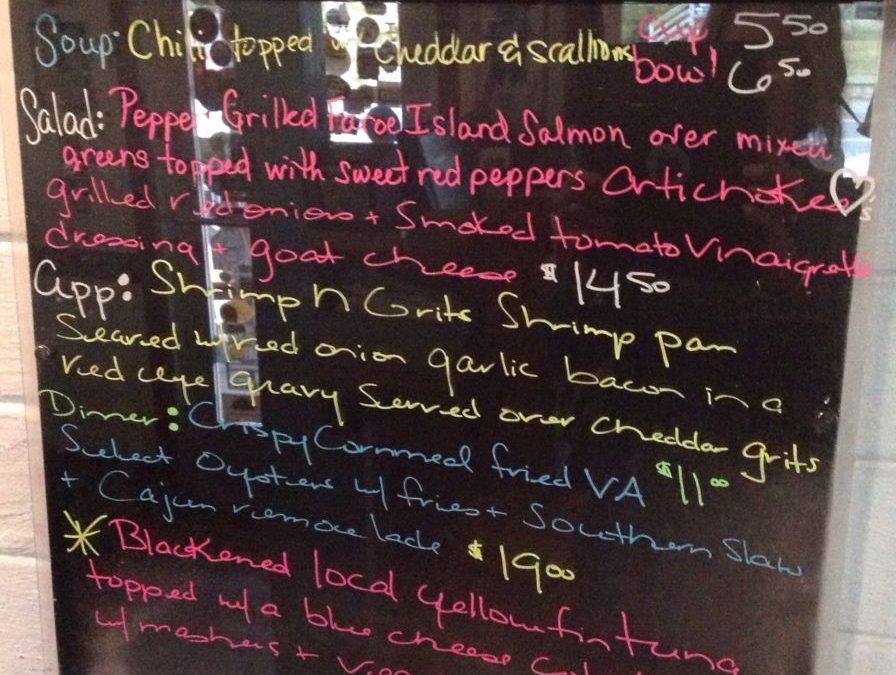 Soup: Chili topped w/ cheddar & scallions cup 5 50
bowl 6 50
Salad: Pepper Grilled Faroe Island Salmon over mixed
greens topped with sweet red peppers artichoke ♡'s
grilled red onions + Smoked tomato Vinaigrette
dressing + goat cheese $14 50
app: Shrimp n Grits Shrimp pan
Seared w/ red onion garlic bacon in a
red eye gravy Served over cheddar grits
$11 00
Dinner: Crispy Cornmeal fried VA
Select Oysters w/ fries + Southern Slaw
+ Cajun remoulade $19 00
* Blackened local yellowfin tuna
topped w/ a blue cheese
w/ mashers +